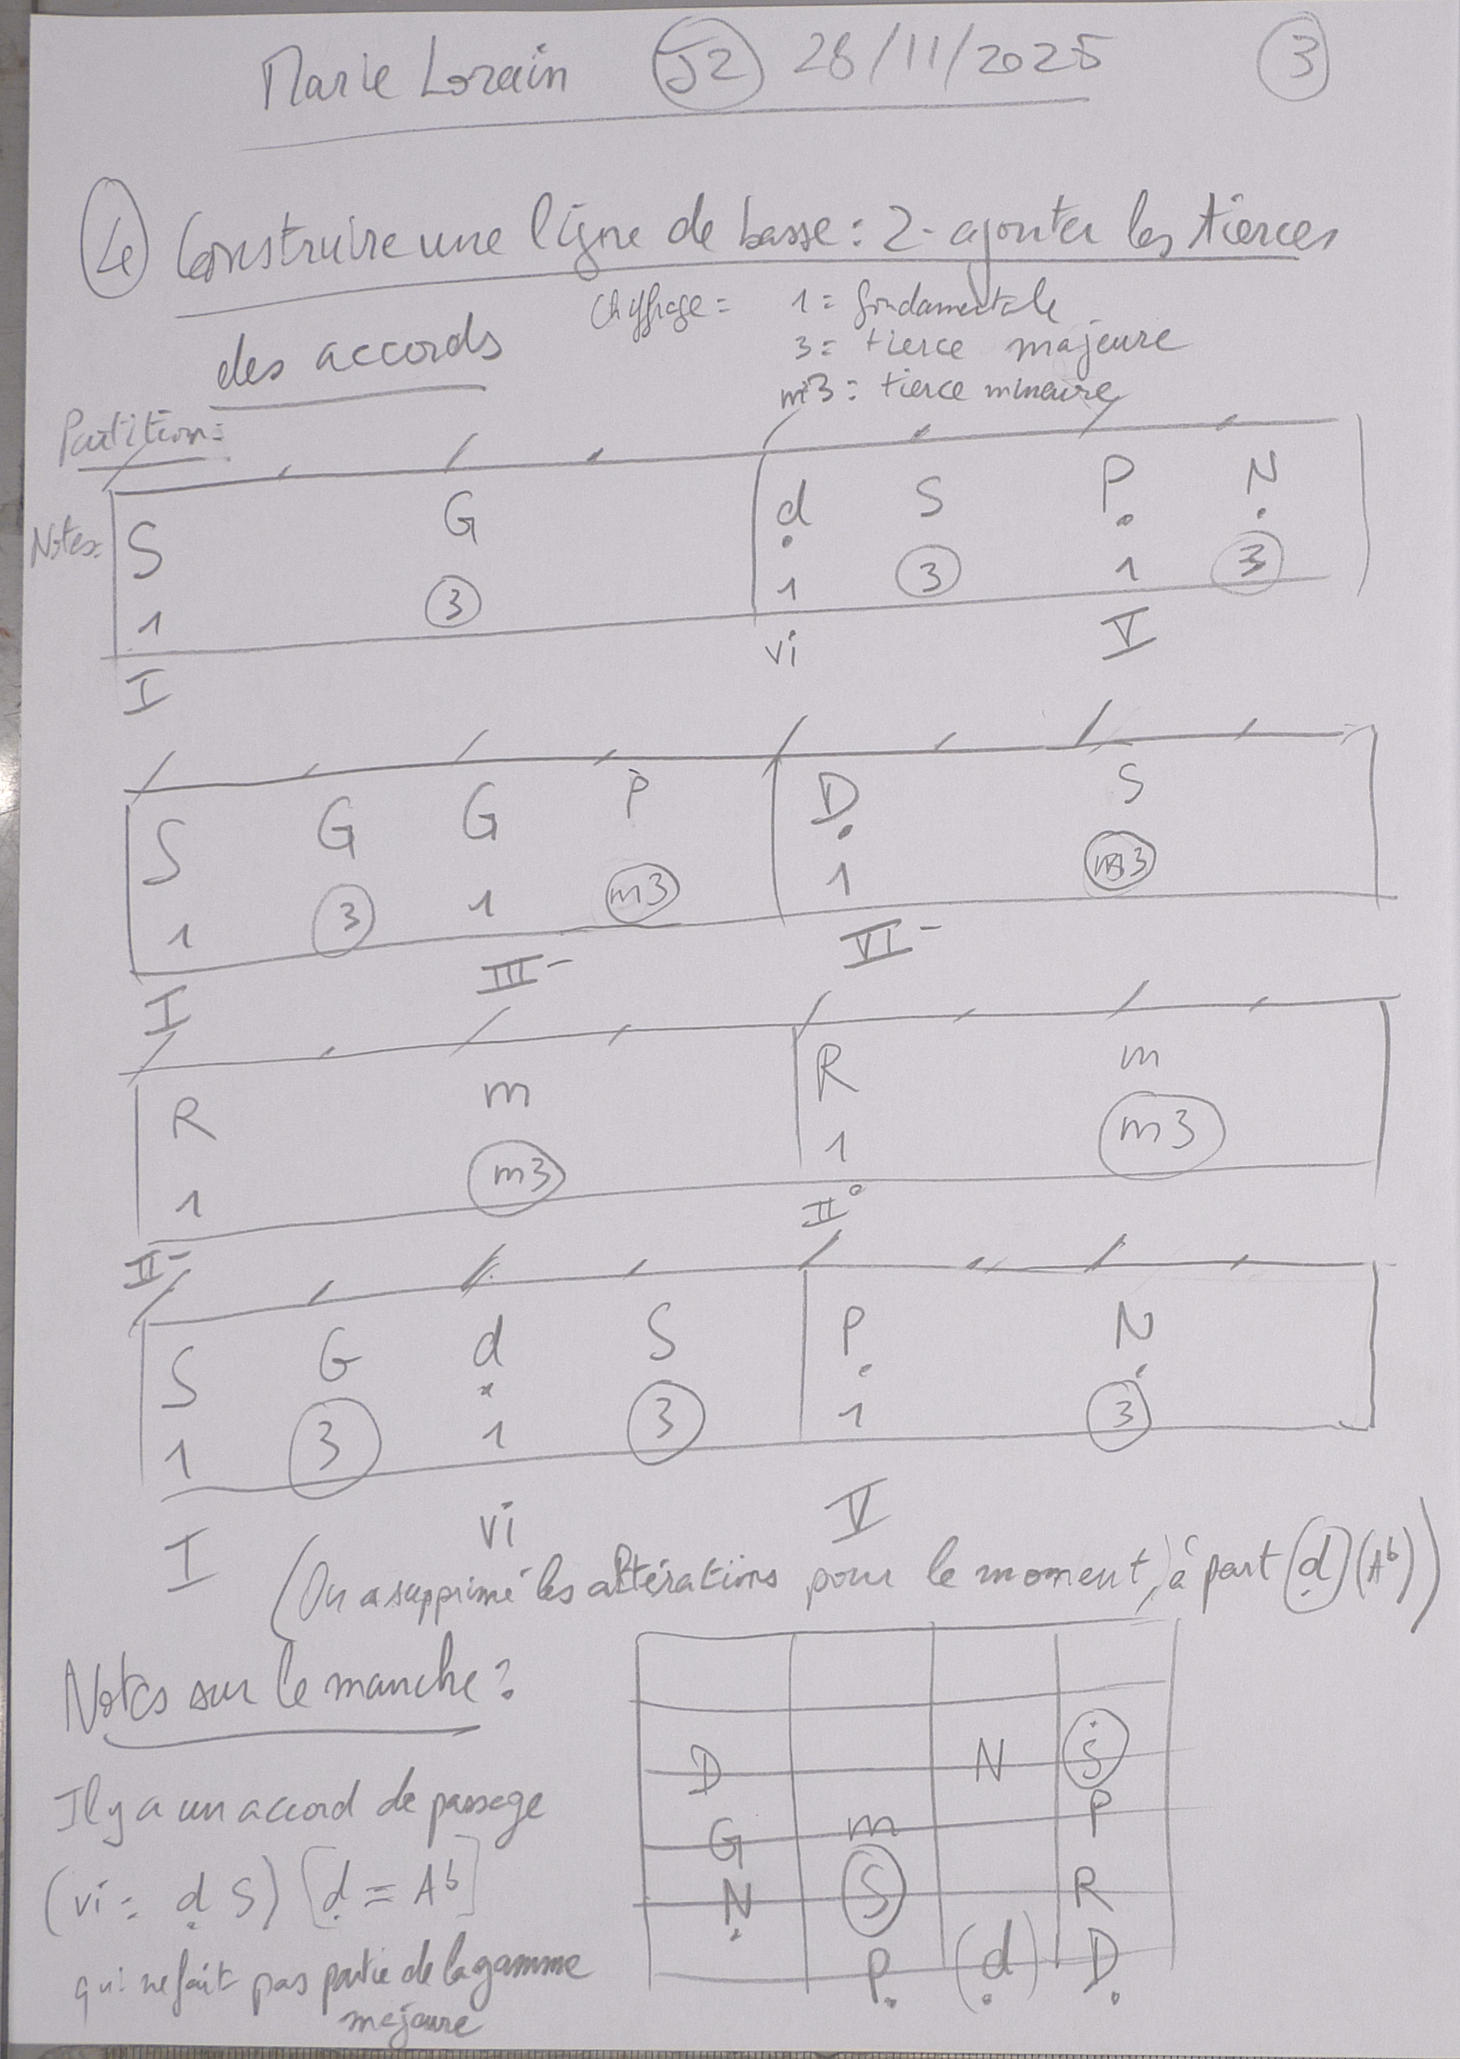 Marie Lorain J2 28/11/2025 3
4 Construire une ligne de basse : 2- ajouter les tierces
des accords
Chiffrage = 1 = fondamentale
3 = tierce majeure
m3 = tierce mineure
Partition :
Notes: S G d S P N
1 3 1 3 1 3
I vi V
S G G P D S
1 3 1 m3 1 m3
I III- VI-
R m R m
1 m3 1 m3
II- II°
S G d S P N
1 3 1 3 1 3
I vi V
(On a supprimé les altérations pour le moment, à part d (Ab))
Notes sur le manche :
D N S
P
G m
N S R
P (d) D
Il y a un accord de passage
(vi = d S) [d = Ab]
qui ne fait pas partie de la gamme
majeure